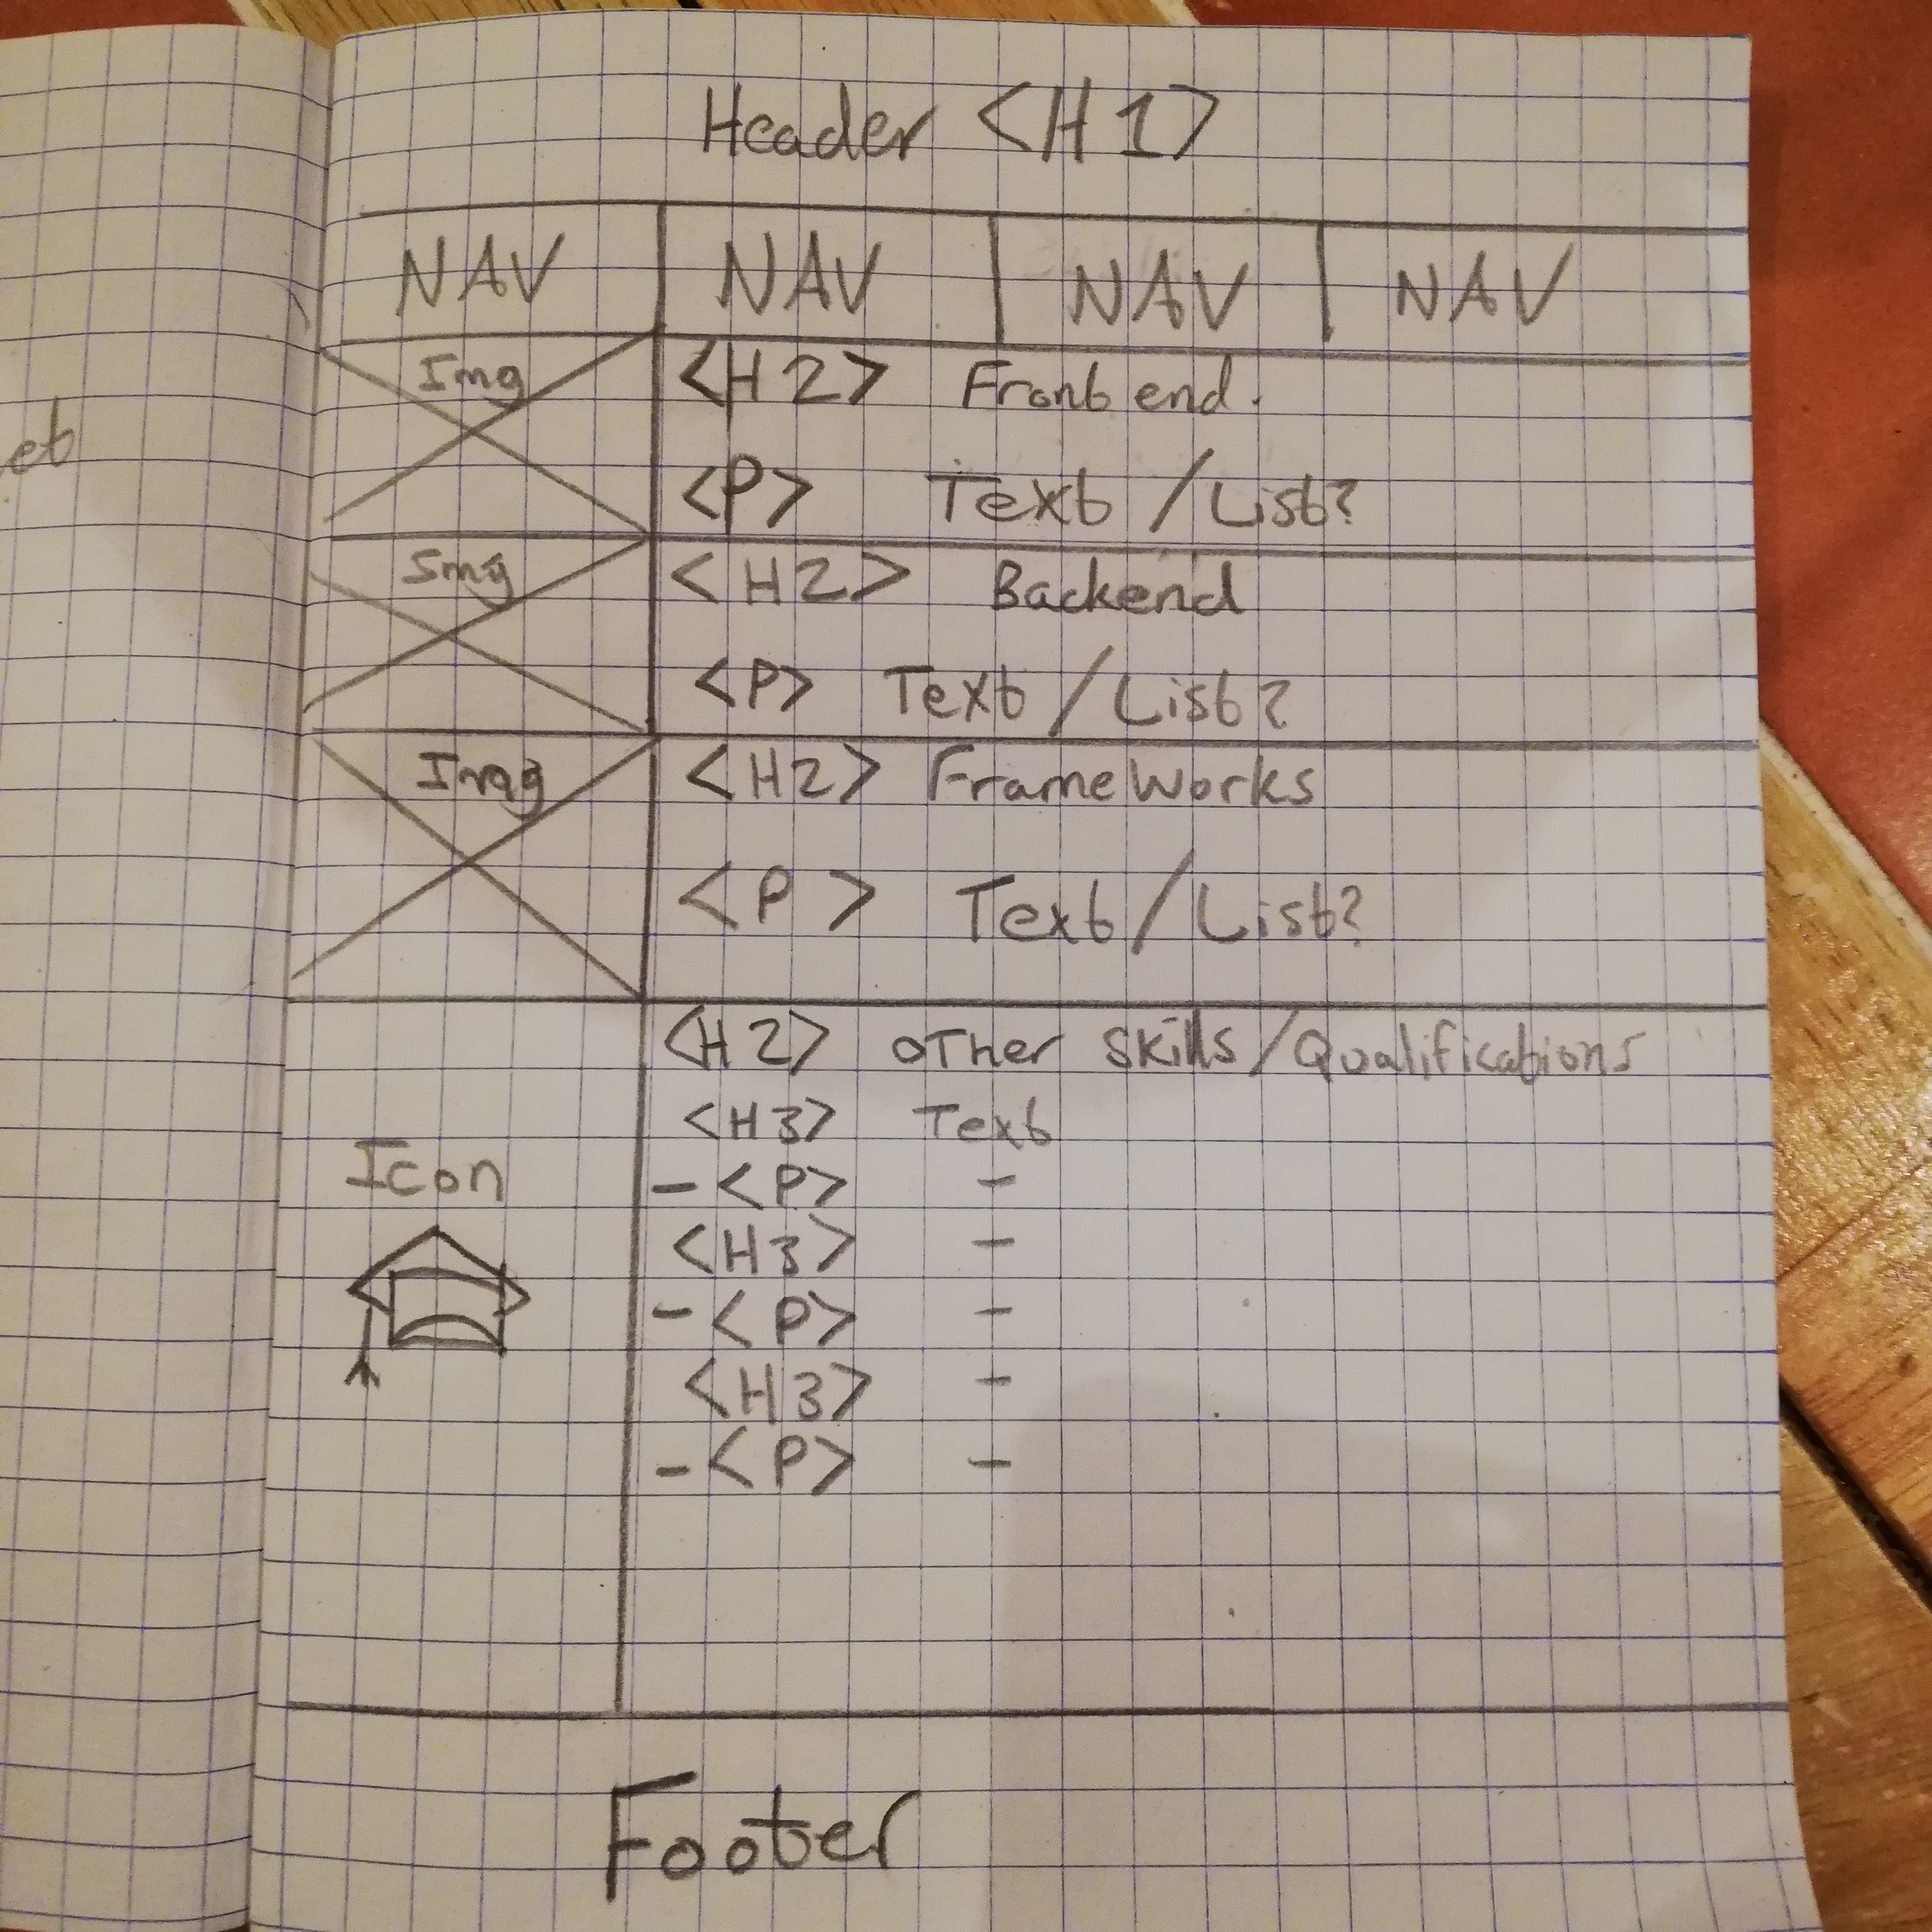 Header <H1>
NAV NAV NAV NAV
Img <H2> Front end.
<P> Text / List?
et
Img <H2> Backend
<P> Text / List?
Img <H2> FrameWorks
<P> Text / List?
<H2> other skills / Qualifications
<H3> Text
Icon
- <P> -
<H3> -
- <P> -
<H3> -
- <P> -
Footer